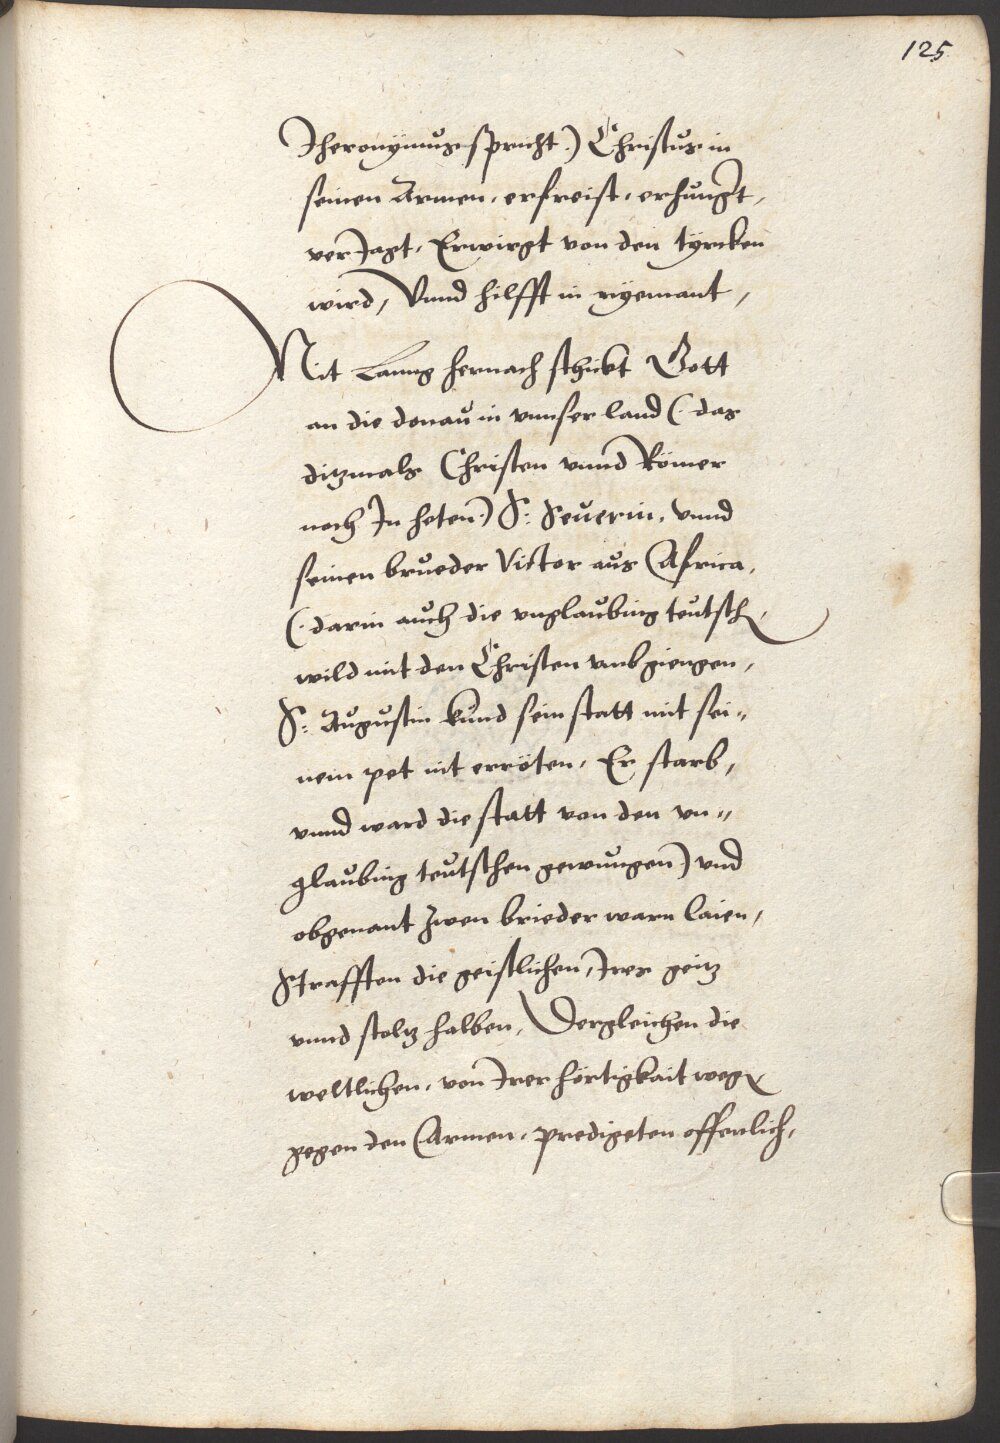 125
Jheronÿmus spricht.) Christus in
seinen Armen, erfreist, erhungt,
verJagt, Erwirgt von den tÿrcken
wird, Vnnd hilfft in nÿemant,
Nit Lanng hernach schickt Gott
an die donau in vnnser land (. das
ditzmals Christen vnnd Römer
noch In heten.) S: Seuerin, vnnd
seinen brueder Victor aus Africa,
(. darin auch die vnglaubing teutsch,
wild mit den Christen vmbgiengen,
S: Augustin kund sein statt mit sei„
nem pet nit erröten, Er starb,
vnnd ward die statt von den vn„
glaubing teutschen gewungen) vnd
obgenant zwen brieder warn laien,
Strafften die geistlichen, Irer geitz
vnnd stoltz halben, Dergleichen die
weltlichen, von Irer hörtigkait weg
gegen den Armen, predigeten offenlich,